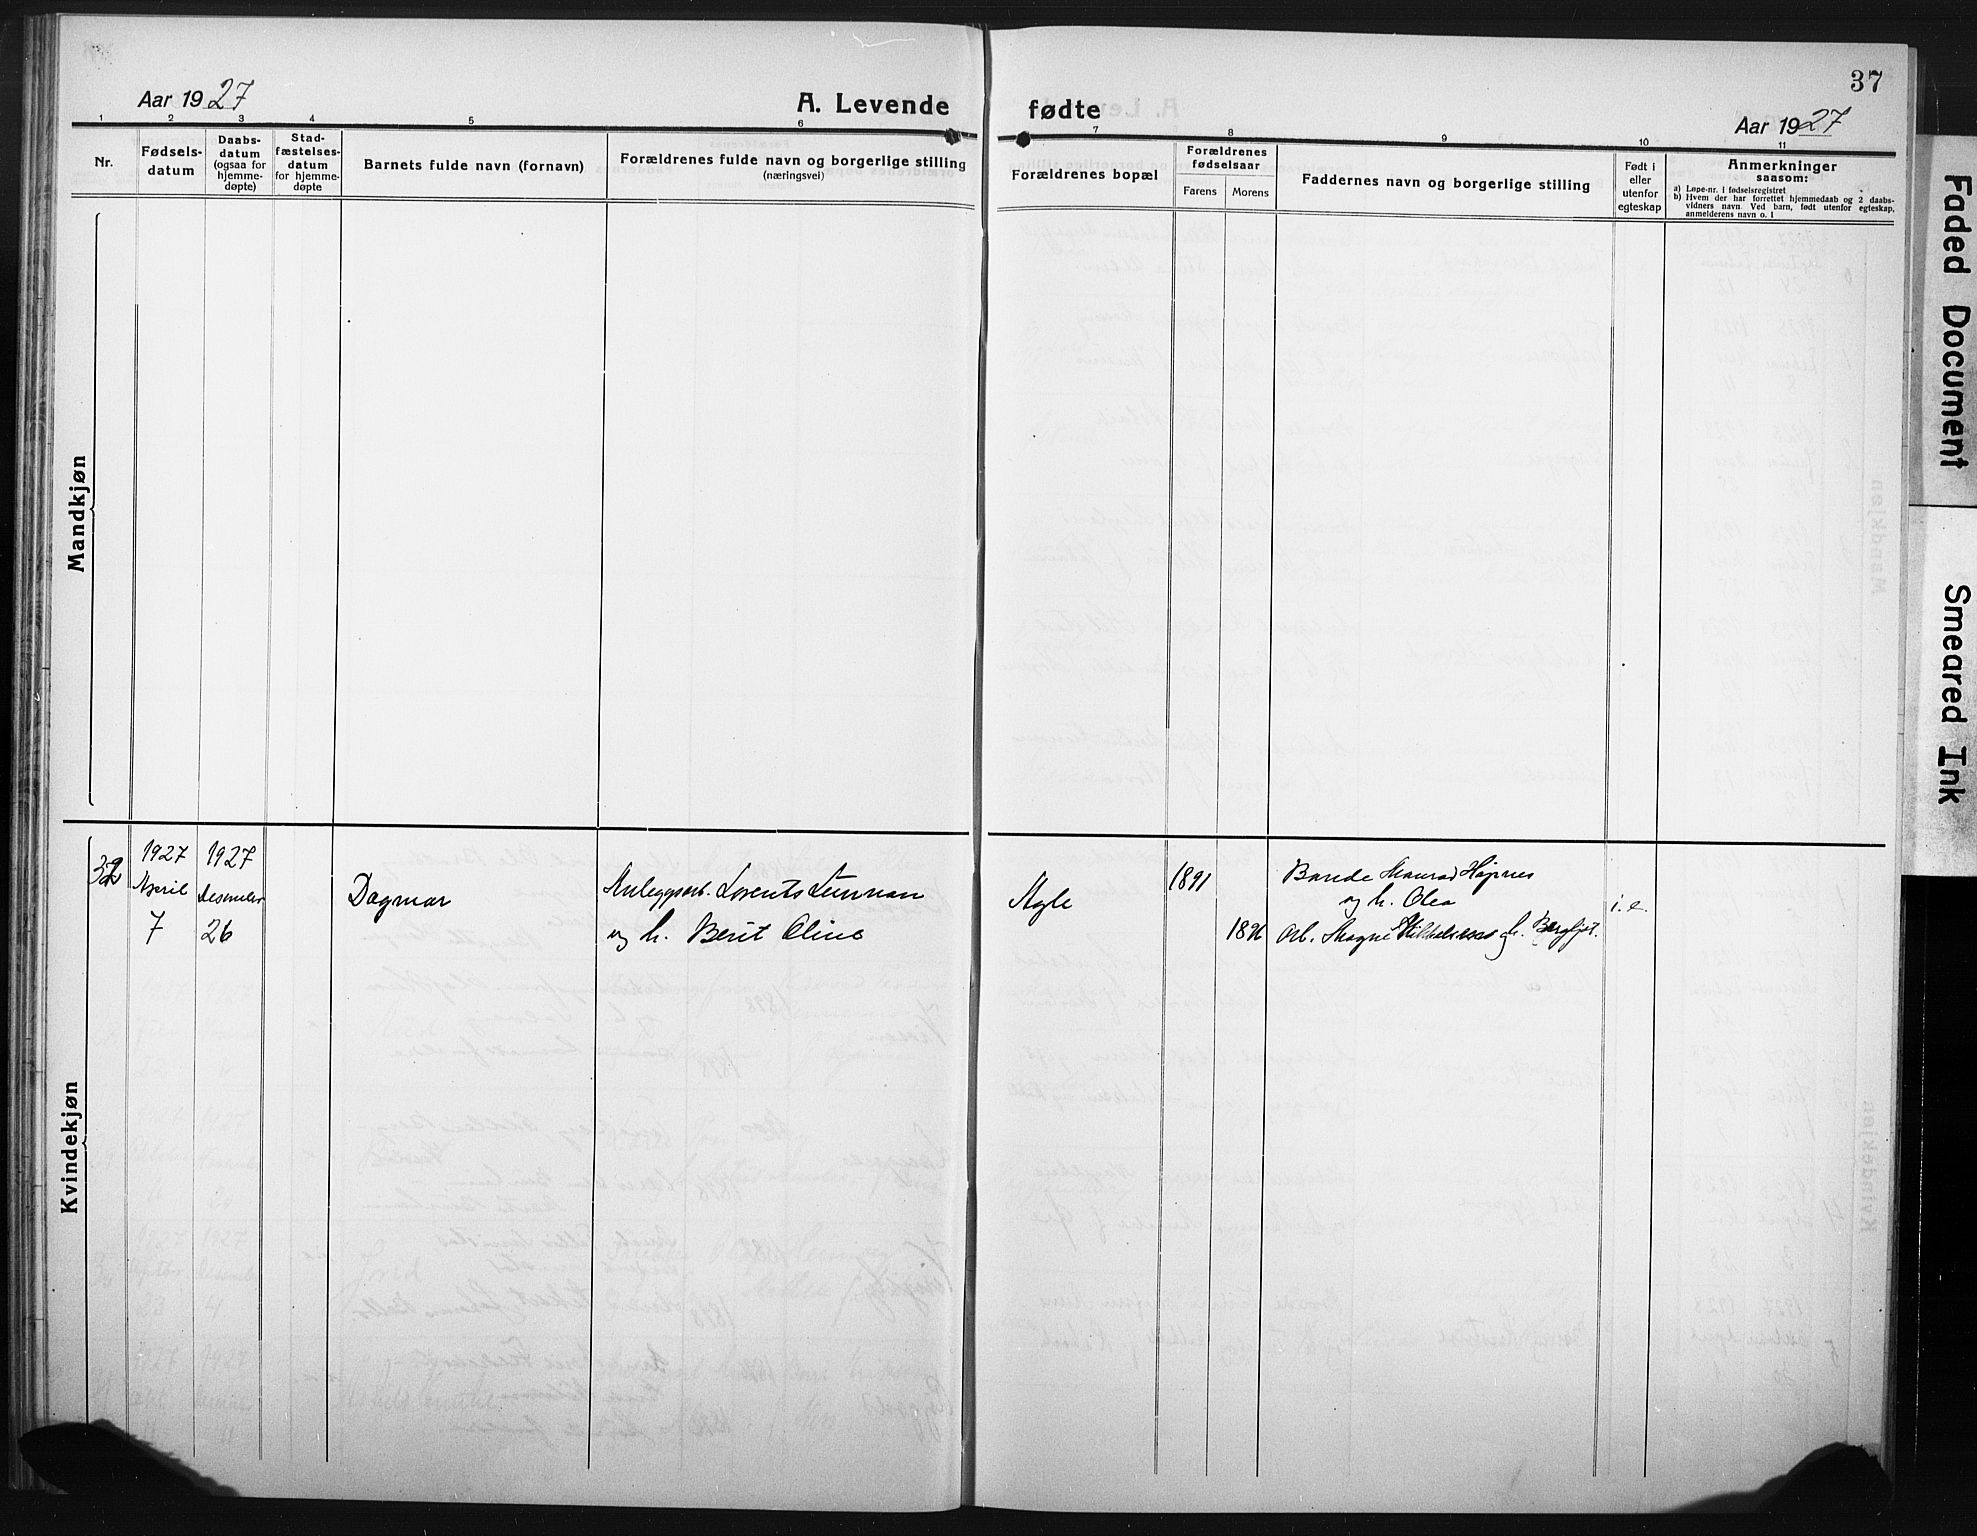 37
Aar 1927
A. Levende fødte
Aar 1927
1 2 3 4 5 6 7 8 9 10 11
Nr.
Fødsels-
datum
Daabs-
datum
(ogsaa for
hjemme-
døpte)
Stad-
fæstelses-
datum
for hjemme-
døpte
Barnets fulde navn (fornavn)
Forældrenes fulde navn og borgerlige stilling
(næringsvei)
Forældrenes bopæl
Forældrenes
fødselsaar
Farens Morens
Faddernes navn og borgerlige stilling
Født i
eller
utenfor
egteskap
Anmerkninger
saasom:
a) Løpe-nr. i fødselsregistret
b) Hvem der har forrettet hjemmedaab og 2 daabs-
vidners navn. Ved barn, født utenfor egteskap,
anmelderens navn o. l
Mandkjøn
Kvindekjøn
1927
April
7
1927
Desember
26
Dagmar
Anleggsarb. Lorents
og h. Berit Oline
Agle
1891
1896
Bonde Høpnes
og h. Olea
Arb. Magne Mikkelsen og h. Bergljot.
i. e.
Faded Document
Smeared Ink